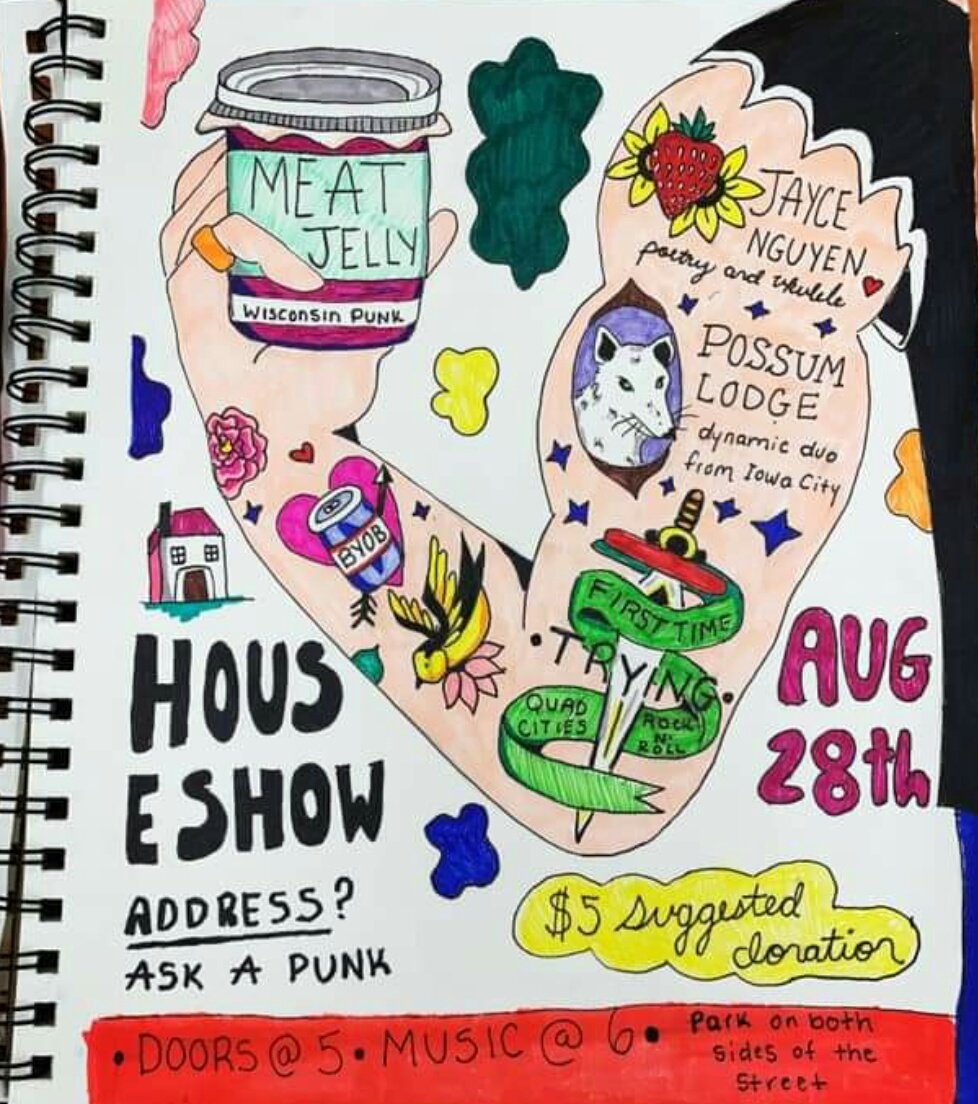 MEAT
JELLY
Wisconsin Punk
JAYCE
NGUYEN
poetry and ukulele
POSSUM
LODGE
dynamic duo
from Iowa City
BYOB
FIRST TIME
• TRYING •
QUAD
CITIES
ROCK
N'
ROLL
HOUS
E SHOW
ADDRESS?
ASK A PUNK
AUG
28th
$5 suggested
donation
• DOORS @ 5 • MUSIC @ 6 •
Park on both
sides of the
street